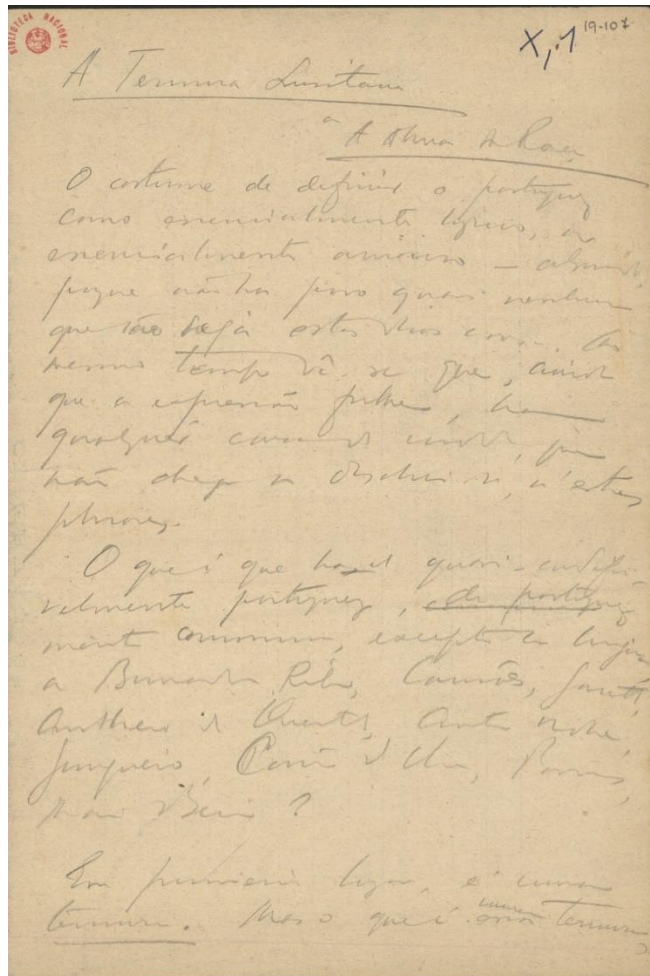 BIBLIOTECA NACIONAL
X, 1 19-107
A Ternura Lusitana
A Alma da Raça
O costume de definir o portuguez
como essencialmente lyrico, ou
essencialmente amoroso —
porque não ha povo quasi nenhum
que não seja estas duas cousas. Ao
mesmo tempo vê-se que, ainda
que a expressão falhe, ha
qualquér cousa de
não chega a, n'estas
phrases.
O que é que ha de quasi-
velmente portuguez, de portuguez
mente commum, excepto a lingua
a Bernardim Rib., Camões, Garrett,
Anthero de Quental, Antonio Nobre,
Junqueiro, Correia d'Oliv.,
?
Em primeiro logar, é uma
ternura. Mas o que é ternura